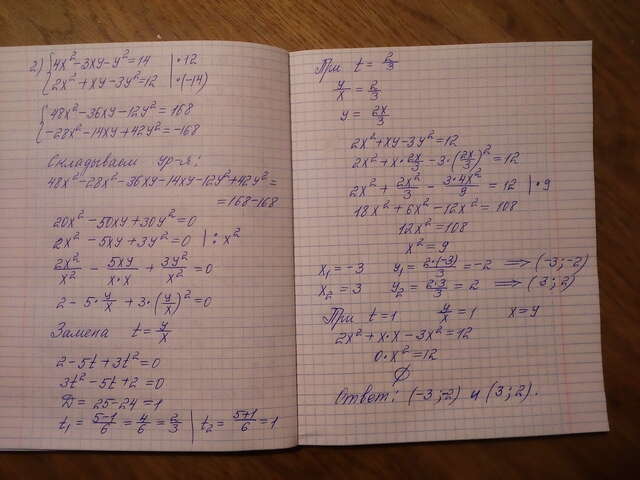 2) { 4x² - 3xy - y² = 14 | · 12
{ 2x² + xy - 3y² = 12 | · (-14)
{ 48x² - 36xy - 12y² = 168
{ -28x² - 14xy + 42y² = -168
Складываем ур-я:
48x² - 28x² - 36xy - 14xy - 12y² + 42y² =
= 168 - 168
20x² - 50xy + 30y² = 0
2x² - 5xy + 3y² = 0 | : x²
2x²/x² - 5xy/x·x + 3y²/x² = 0
2 - 5·y/x + 3·(y/x)² = 0
Замена t = y/x
2 - 5t + 3t² = 0
3t² - 5t + 2 = 0
D = 25 - 24 = 1
t₁ = 5-1/6 = 4/6 = 2/3 | t₂ = 5+1/6 = 1
При t = 2/3
y/x = 2/3
y = 2x/3
2x² + xy - 3y² = 12
2x² + x·2x/3 - 3·(2x/3)² = 12
2x² + 2x²/3 - 3·4x²/9 = 12 | · 9
18x² + 6x² - 12x² = 108
12x² = 108
x² = 9
x₁ = -3 y₁ = 2·(-3)/3 = -2 ⟹ (-3; -2)
x₂ = 3 y₂ = 2·3/3 = 2 ⟹ (3; 2)
При t = 1 y/x = 1 x = y
2x² + x·x - 3x² = 12
0·x² = 12
∅
Ответ: (-3; -2) и (3; 2).